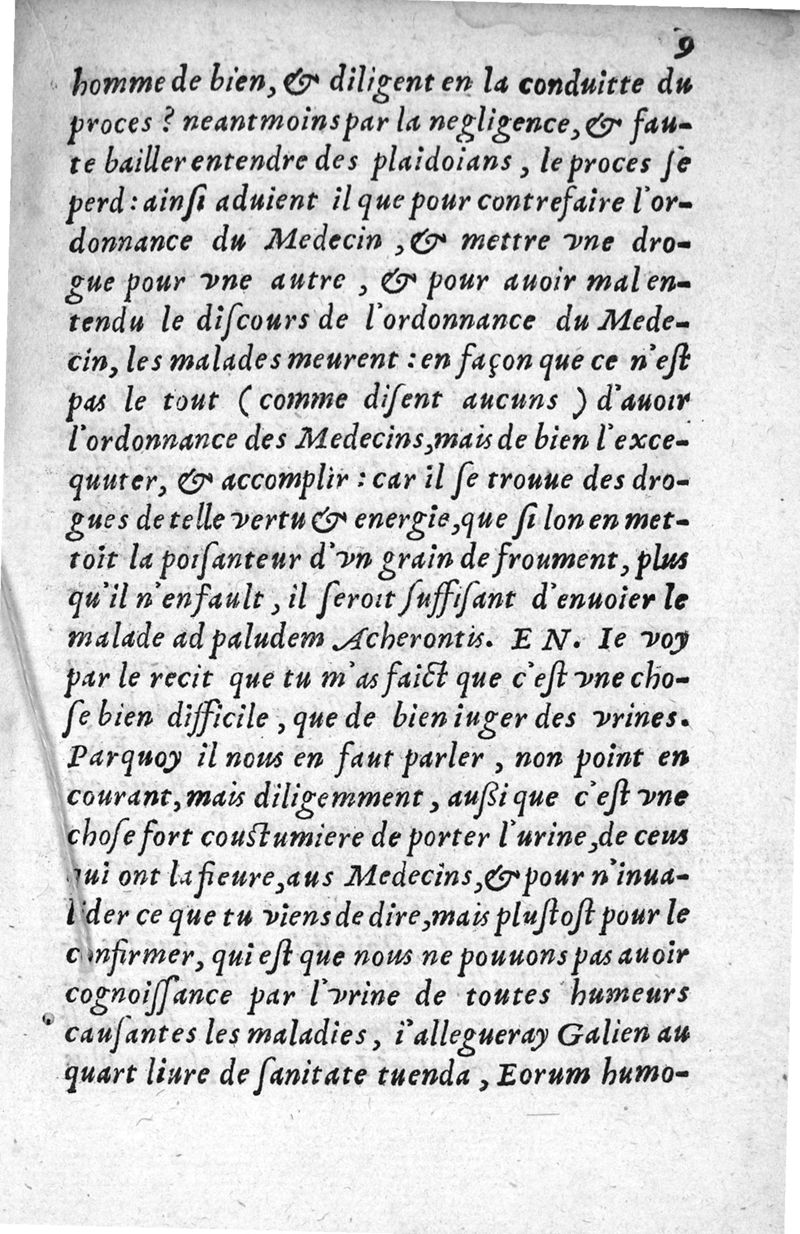 9
homme de bien, & diligent en la conduitte du
proces ? neantmoins par la negligence, & fau-
te bailler entendre des plaidoians , le proces ſe
perd : ainſi aduient il que pour contrefaire l'or-
donnance du Medecin , & mettre vne dro-
gue pour vne autre , & pour auoir mal en-
tendu le diſcours de l'ordonnance du Mede-
cin, les malades meurent : en façon que ce n'eſt
pas le tout ( comme diſent aucuns ) d'auoir
l'ordonnance des Medecins, mais de bien l'exce-
quuter, & accomplir : car il ſe trouue des dro-
gues de telle vertu & energie, que ſi lon en met-
toit la poiſanteur d'vn grain de froument, plus
qu'il n'en fault , il ſeroit ſuffiſant d'enuoier le
malade ad paludem Acherontis. E N. Ie voy
par le recit que tu m'as faict que c'eſt vne cho-
ſe bien difficile , que de bien iuger des vrines.
Parquoy il nous en faut parler , non point en
courant, mais diligemment , außi que c'eſt vne
choſe fort couſtumiere de porter l'urine, de ceus
qui ont la fieure, aus Medecins, & pour n'inua-
lider ce que tu viens de dire, mais pluſtoſt pour le
confirmer, qui eſt que nous ne pouuons pas auoir
cognoiſſance par l'vrine de toutes humeurs
cauſantes les maladies, i'allegueray Galien au
quart liure de ſanitate tuenda , Eorum humo-